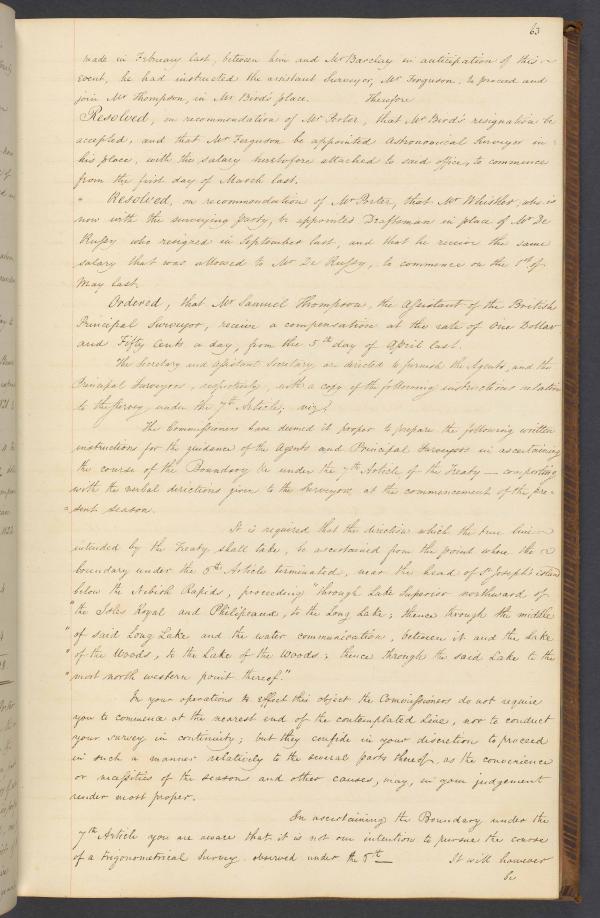 63
made in February last, between him and Mr Barclay in anticipation of this
event, he had instructed the assistant Surveyor, Mr Ferguson, to proceed and
join Mr Thompson, in Mr Bird's place. Therefore
Resolved, on recommendation of Mr Porter, that Mr Bird's resignation be
accepted, and that Mr Ferguson be appointed Astronomical Surveyor in
his place, with the salary heretofore attached to said office, to commence
from the first day of March last.
" Resolved, on recommendation of Mr Porter, that Mr Whistler, who is
now with the surveying party, be appointed Draftsman in place of Mr De
Russy who resigned in September last, and that he receive the same
salary that was allowed to Mr De Russy, to commence on the 1st of
May last.
Ordered, that Mr Samuel Thompson, the Assistant of the British
Principal Surveyor, receive a compensation at the rate of One Dollar
and Fifty Cents a day, from the 5th day of April last.
The Secretary and assistant Secretary are directed to furnish the Agents, and the
Principal Surveyors, respectively, with a copy of the following instructions relative
to the survey under the 7th Article; viz:
The Commissioners have deemed it proper to prepare the following written
instructions for the guidance of the Agents and Principal Surveyors in ascertaining
the course of the Boundary &c under the 7th Article of the Treaty — comporting
with the verbal directions given to the Surveyors at the commencement of the pre-
sent season.
It is required that the direction which the true line
intended by the Treaty shall take, be ascertained from the point where the
boundary under the 6th Article terminated, near the head of St Joseph's island
below the Nebish Rapids, proceeding "through Lake Superior northward of
"the Isles Royal and Philipeaux, to the Long Lake; thence through the middle
"of said Long Lake and the water communication, between it and the Lake
"of the Woods, to the Lake of the Woods; thence through the said Lake to the
"most north western point thereof."
In your operations to effect this object the Commissioners do not require
you to commence at the nearest end of the contemplated Line, nor to conduct
your survey in continuity; but they confide in your discretion to proceed
in such a manner relatively to the several parts thereof, as the convenience
or necessities of the season and other causes, may, in your judgement
render most proper.
In ascertaining the Boundary under the
7th Article you are aware that it is not our intention to pursue the course
of a trigonometrical Survey observed under the 6th — It will however
be